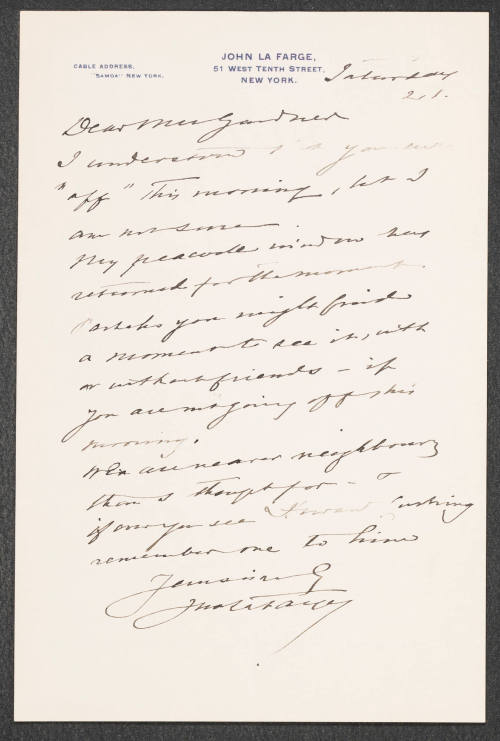 JOHN LA FARGE,
51 WEST TENTH STREET,
NEW YORK.
CABLE ADDRESS,
"SAMOA" NEW YORK.
Saturday
21.
Dear Mrs Gardner
I understand that you are
"off" this morning, but I
am not sure.
My peacock window has
returned for the moment.
Perhaps you might find
a moment to see it, with
or without friends – if
you are not going off this
morning.
We are nearer neighbours
than I thought for –
if ever you see Cushing
remember me to him
Yours sincerely
Jno La Farge